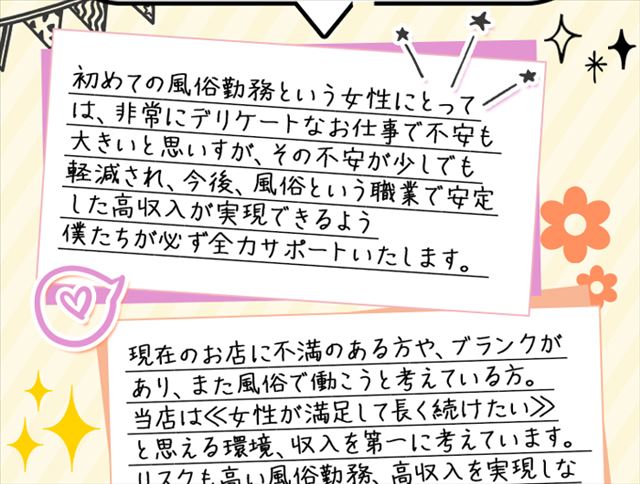 初めての風俗勤務という女性にとって
は、非常にデリケートなお仕事で不安も
大きいと思いすが、その不安が少しでも
軽減され、今後、風俗という職業で安定
した高収入が実現できるよう
僕たちが必ず全力サポートいたします。
現在のお店に不満のある方や、ブランクが
あり、また風俗で働こうと考えている方。
当店は≪女性が満足して長く続けたい≫
と思える環境、収入を第一に考えています。
リスクも高い風俗勤務、高収入を実現しな